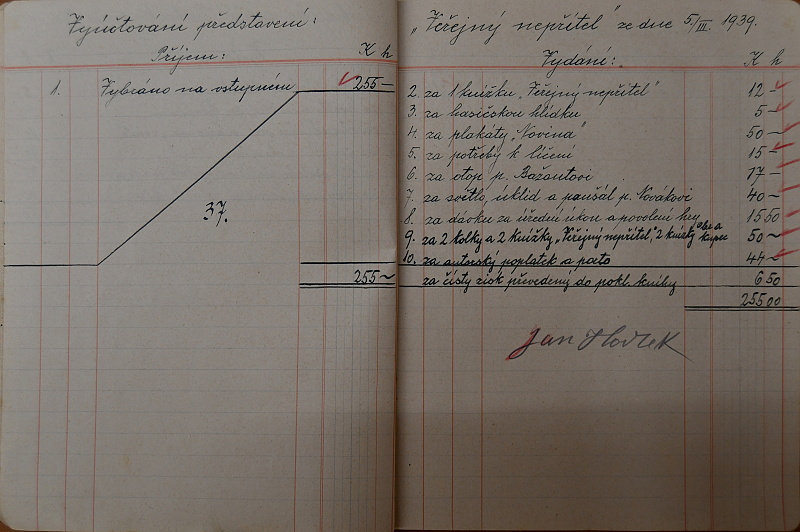 Vyúčtování představení:
Příjem: K h
1. Vybráno na vstupném 255 —
37.
255 ~
"Veřejný nepřítel" ze dne 5/III. 1939.
Vydání: K h
2. za 1 knížku „Veřejný nepřítel" 12 —
3. za hasičskou hlídku 5 —
4. za plakáty „Novina" 50 —
5. za potřeby k líčení 15 —
6. za otop p. Bažantovi 17 —
7. za světlo, úklid a paušál p. Novákovi 40 —
8. za dávku za úřední úkon a povolení hry 15 50
9. za 2 kolky a 2 knížky „Veřejný nepřítel", 2 knížky a kupec 50 ~
10. za autorský poplatek a porto 44 ~
za čistý zisk převedený do pokl. knihy 6 50
255 00
Jan